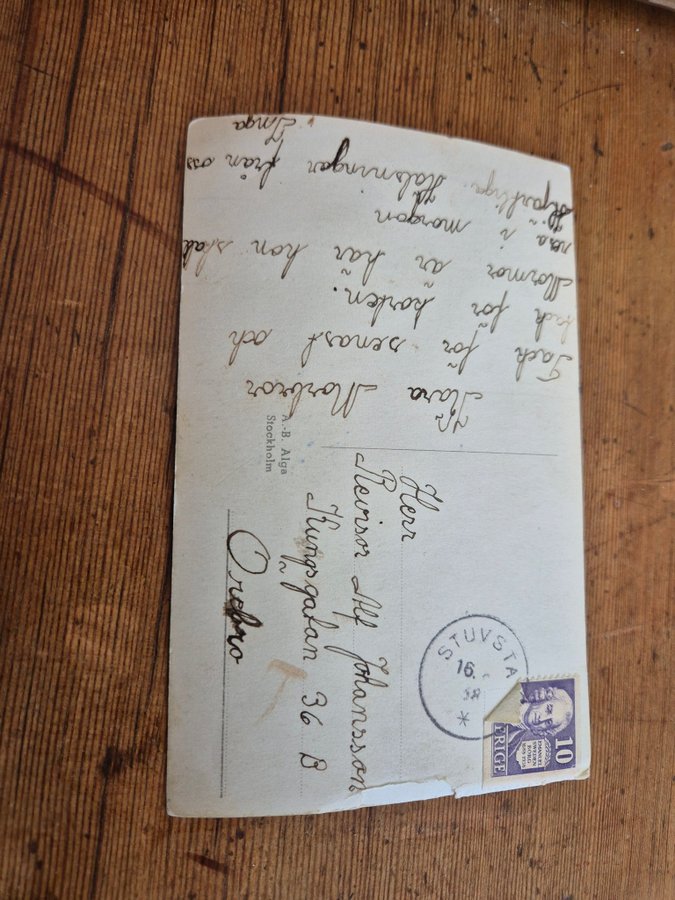 Kära Morbror
Tack för senast och
tack för korten.
Mormor är här hon skall
resa i morgon
Hjärtliga Hälsningar från oss
Inga
A.-B. Alga
Stockholm
Herr
Revisor Alf Johansson
Kungsgatan 36 B
Örebro
STUVSTA
16.
38
10
EMANUEL
SWEDEN
BORG
ERIGE